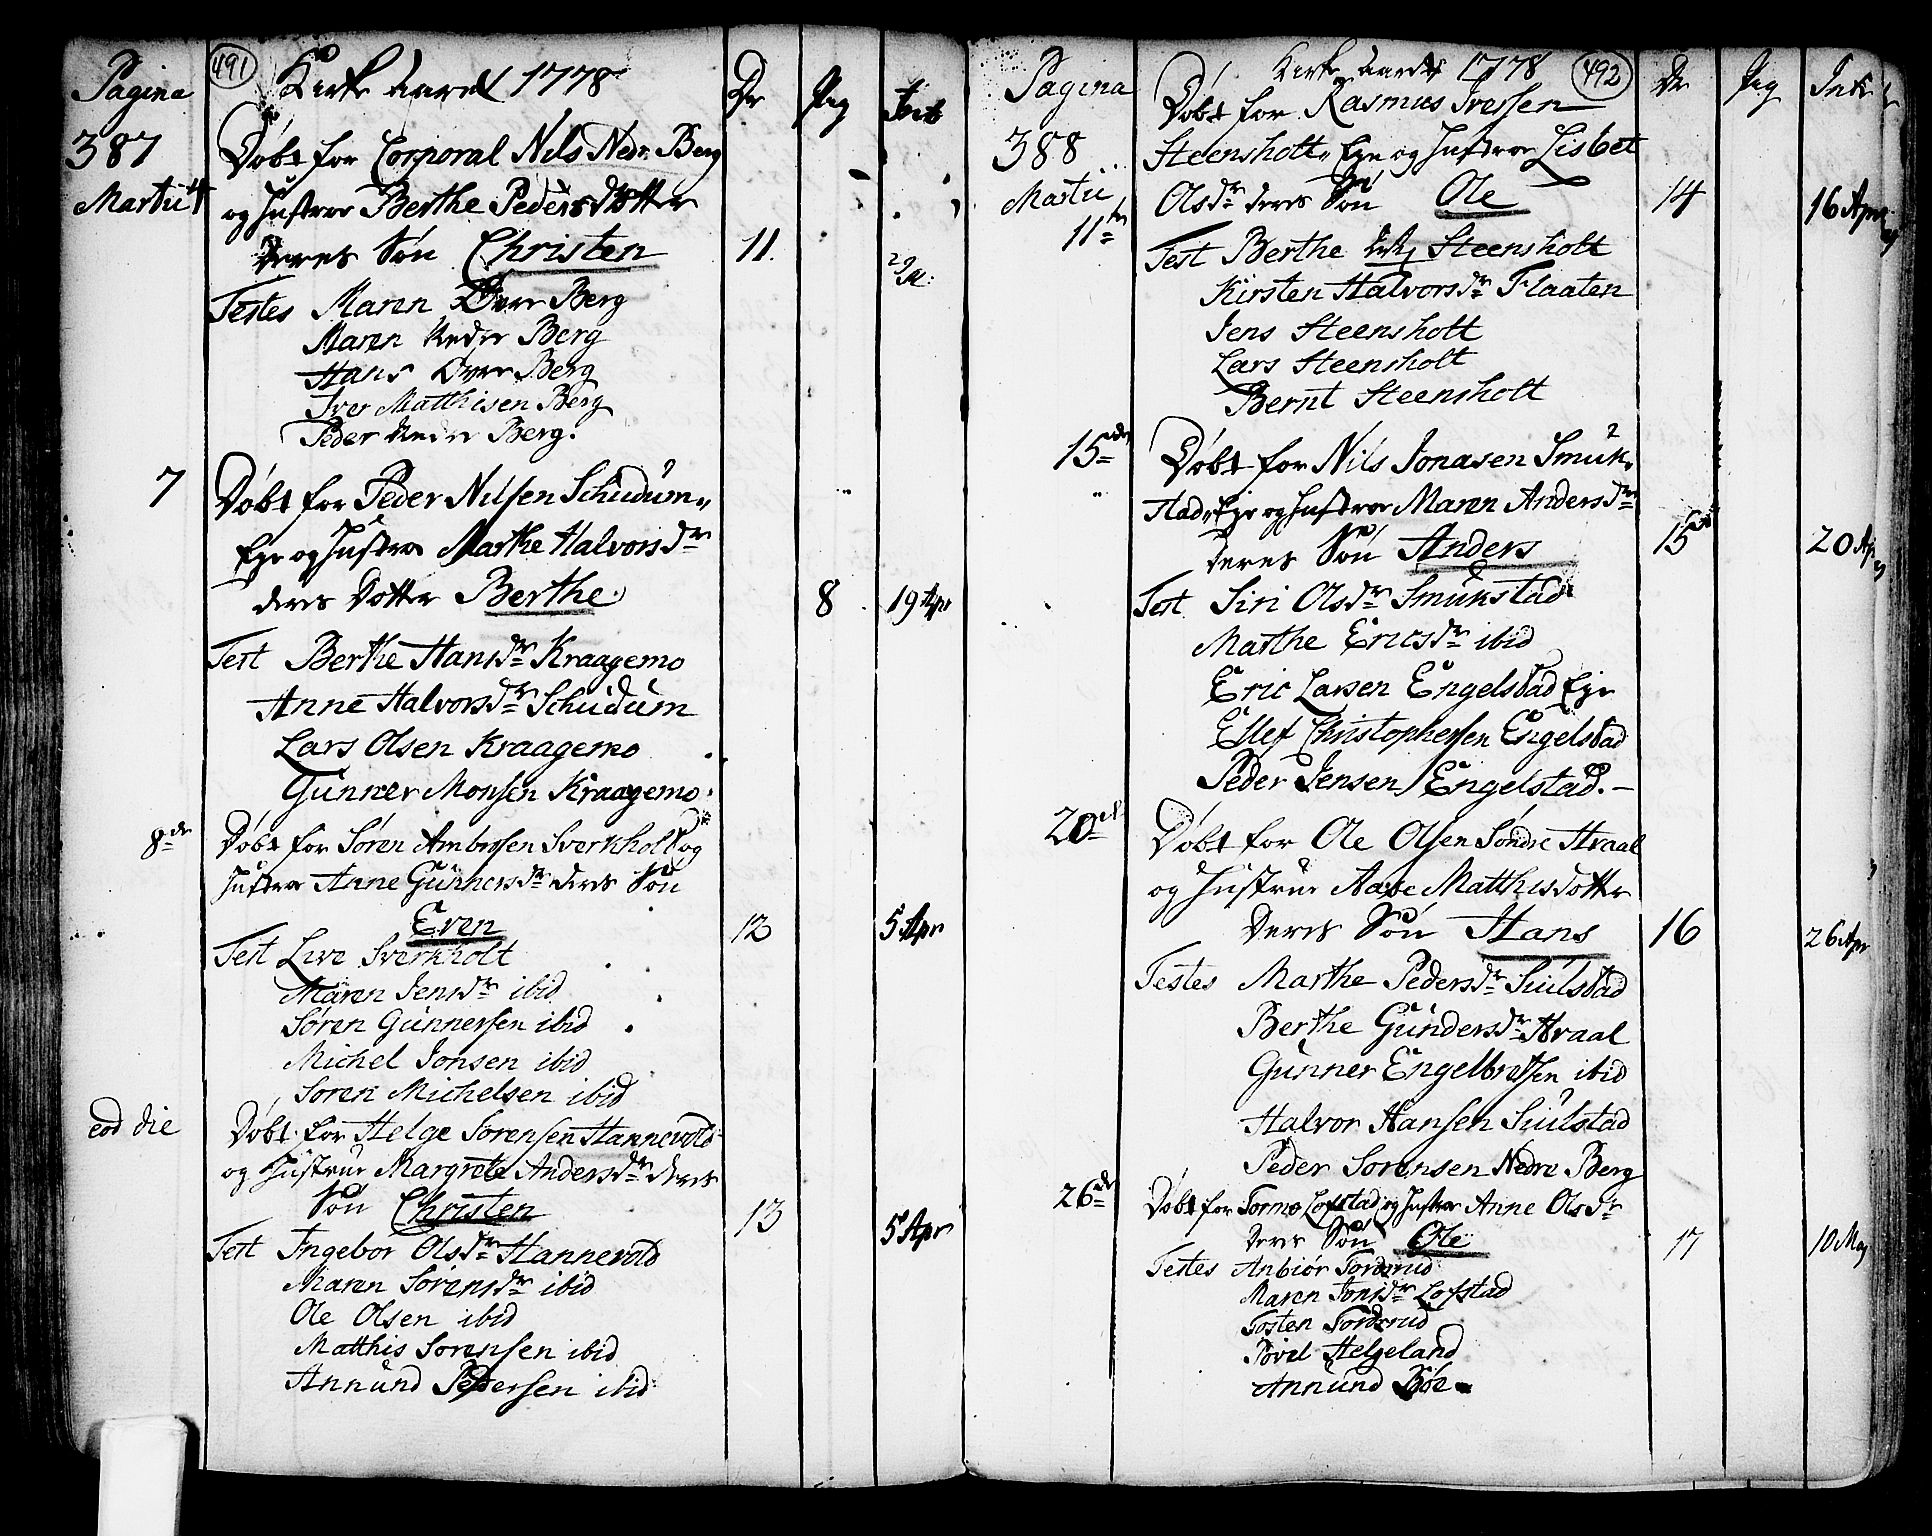 Pagina
491
Kirke Aaret 1778
Dr
Pig
Intr
387
Døbt for Corporal Nils Nedr. Berg
Martii 4
og Hustroe Berthe Pedersdotter
deres Søn Christen 11.
Testes Maren Øvre Berg
Maren Nedre Berg
Hans Øvre Berg
Iver Matthisen Berg
Peder Nedre Berg.
7 Døbt for Peder Nilsen Schudum„
Eye og Hustroe Marthe Halvorsdr
deres Dotter Berthe 8 19 Apr
Test Berthe Hansdr Kraagemo
Anne Halvorsdr Schudum
Lars Olsen Kraagemo
Gunner Monsen Kraagemo
8de Døbt for Søren Ambrosen Sverkholt og
Hustroe Anne Gunnersdr deres Søn
Even 12 5 Apr
Test Live Sverkholt
Maren Jensdr ibid
Søren Gunnersen ibid
Michel Jonsen ibid
Soren Michelsen ibid
eod die Døbt for Helge Sorensen Hannevold
og Hustrue Margrete Andersdr deres
Søn Christen 13 5 Apr
Test Ingebor Olsdr Hannevold
Maren Sørensdr ibid
Ole Olsen ibid
Matthis Sorensen ibid
Annund Pedersen ibid
Pagina
Kirke Aaret 1778
492
Dr
Pig
Intr
Døbt for Rasmus Iversen
388
Steensholt„ Eye og Hustroe Lisbet
Martii
Olsdr deres Søn Ole 14 16 Apr
11te
Test Berthe Steensholt
Kirsten Halvorsdr Flaaten
Jens Steensholt
Lars Steensholt
Bernt Steensholt
15de Døbt for Nils Jonasen Smuk„
stad„ Eye og Hustroe Maren Andersdr
deres Søn Anders 15 20 Apr
Test Siri Olsdr Smukstad
Marthe Ericsdr ibid
Eric Larsen Engelstad Eye
Ellef Christophersen Engelstad
Peder Jensen Engelstad.
20de Døbt for Ole Olsen Søndre Straal
og Hustrue Aase Matthisdotter
deres Søn Hans 16 26 Apr
Testes Marthe Pedersdr Siulstad
Berthe Gundersdr Straal
Gunner Engelbretsen ibid
Halvor Hansen Siulstad
Peder Sorensen Nedre Berg
26de Døbt for Tormo Lofstad og Hustroe Anne Olsdr
deres Søn Ole 17 10 May
Testes Anbiør Tordsrud
Maren Jonsdr Lofstad
Tosten Tordsrud
Povel Helgeland
Annund Bøe